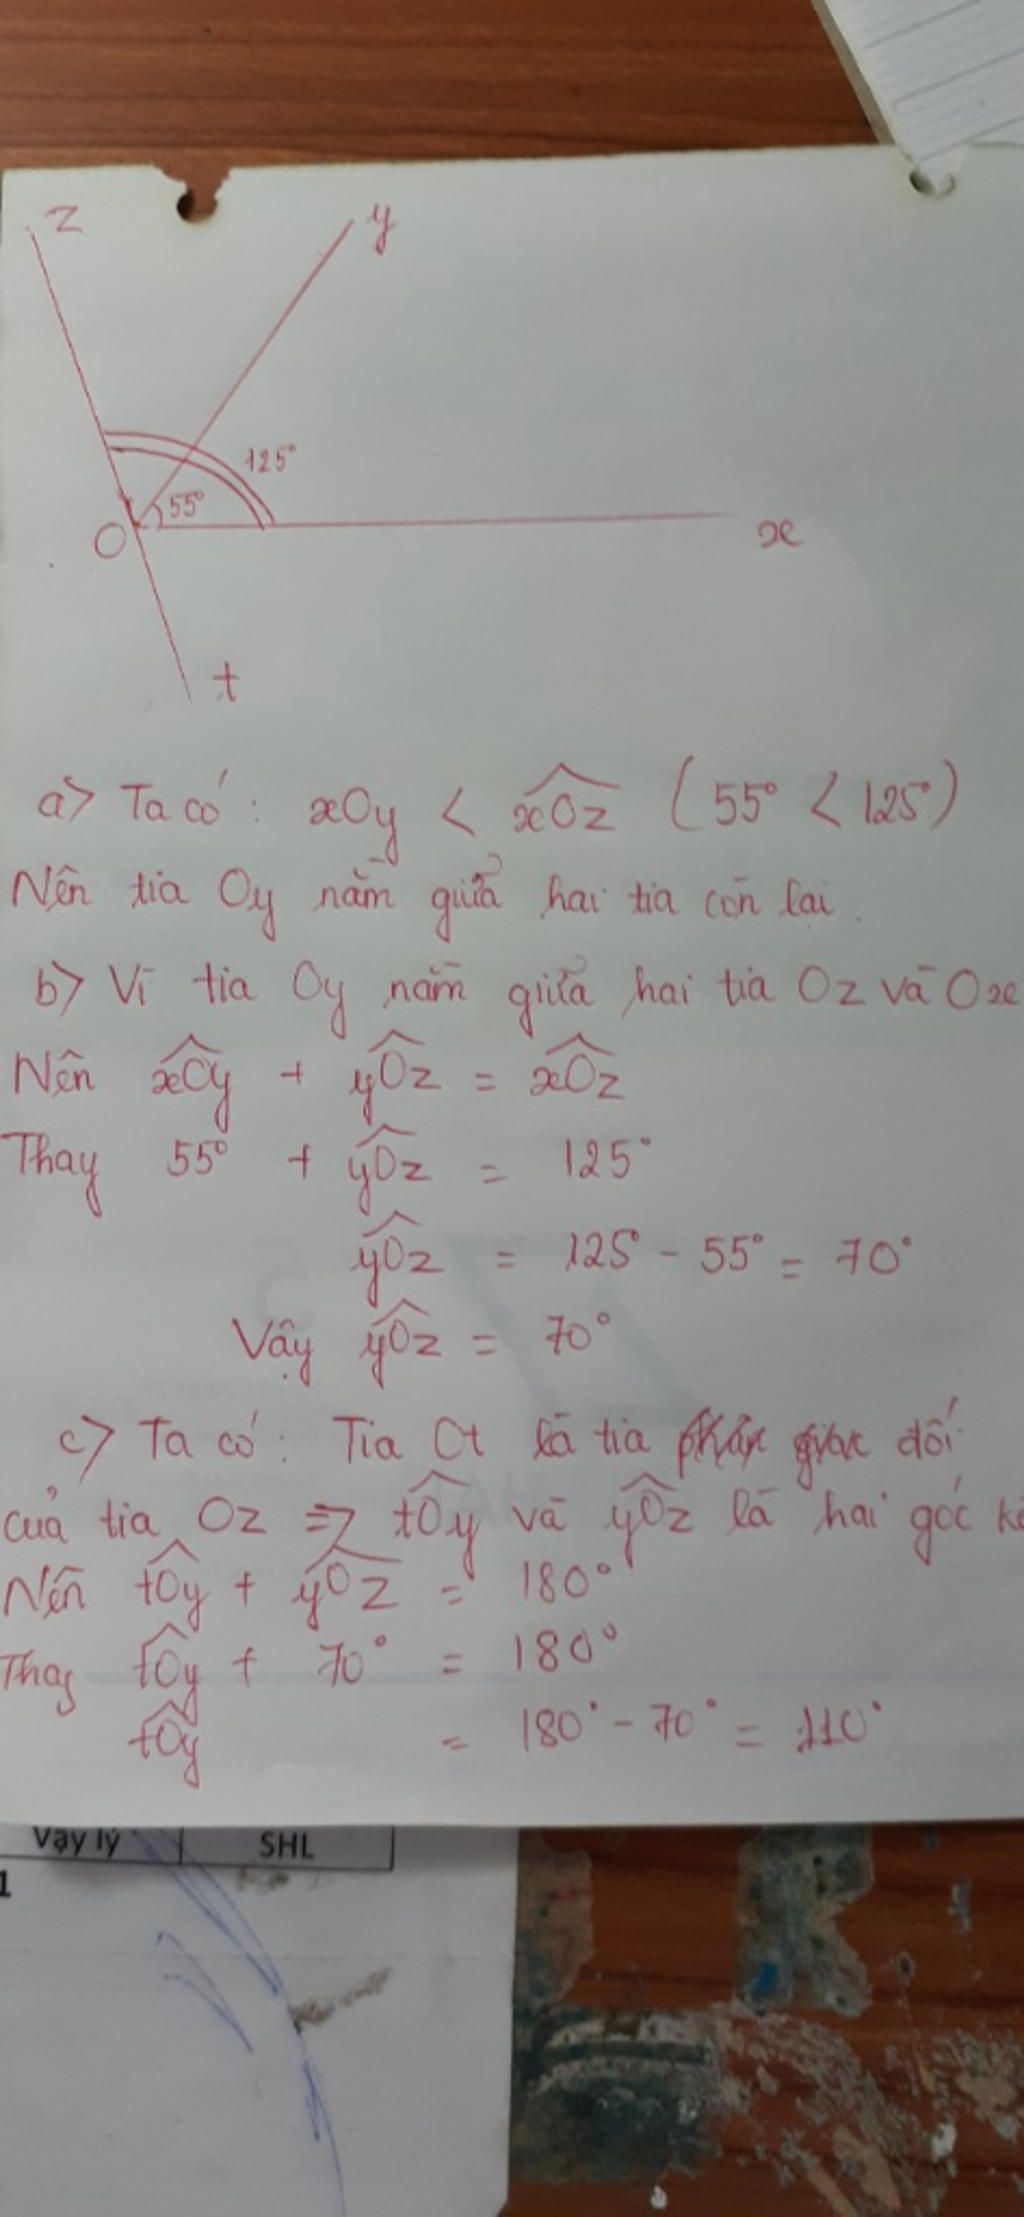 z
y
125°
55°
O
x
t
a) Ta có: xOy < \widehat{xOz} (55° < 125°)
Nên tia Oy nằm giữa hai tia còn lại.
b) Vì tia Oy nằm giữa hai tia Oz và Ox
Nên \widehat{xOy} + \widehat{yOz} = \widehat{xOz}
Thay 55° + \widehat{yOz} = 125°
\widehat{yOz} = 125° - 55° = 70°
Vậy \widehat{yOz} = 70°
c) Ta có: Tia Ot là tia đối
của tia Oz => \widehat{tOy} và \widehat{yOz} là hai góc kề
Nên \widehat{tOy} + \widehat{yOz} = 180°
Thay \widehat{tOy} + 70° = 180°
\widehat{tOy} = 180° - 70° = 110°
Vậy lý SHL
1